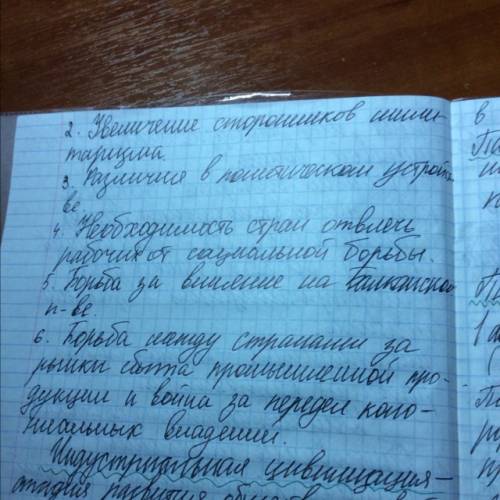 2. Увеличение сторонников мили-
таризма.
3. Различия в политическом устройст
ве.
4. Необходимость стран отвлечь
рабочих от социальной борьбы.
5. Борьба за влияние на Балканском
п-ве.
6. Борьба между странами за
рынки сбыта промышленной про-
дукции и война за передел коло-
ниальных владений.
Индустриальная цивилизация -
стадия развития